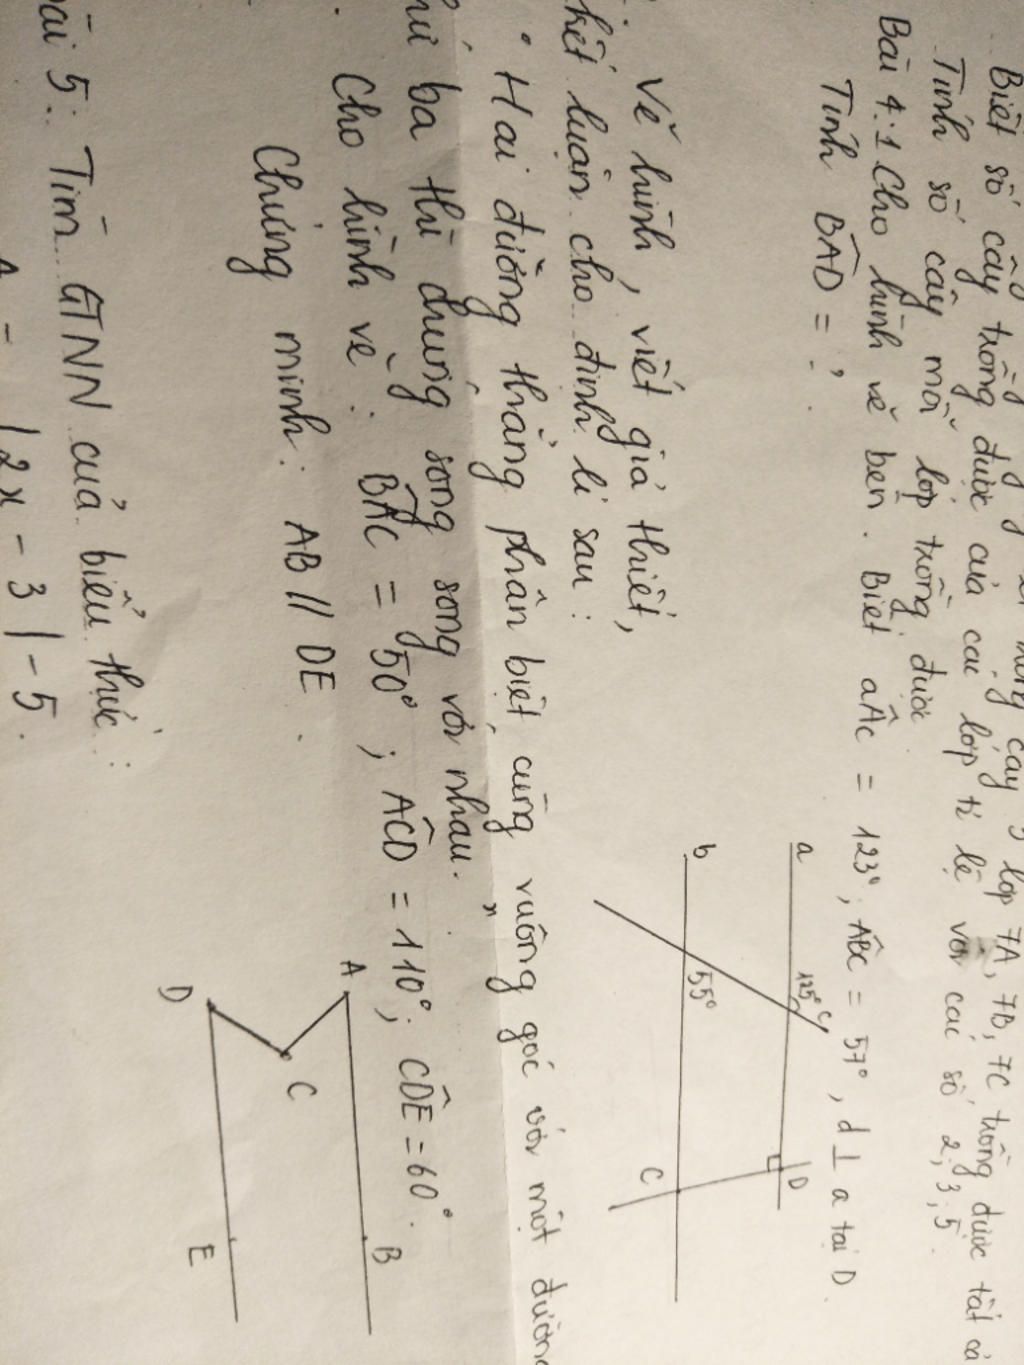 Biết số cây trồng được của các lớp tỉ lệ với các số 2; 3; 5.
Tính số cây mỗi lớp trồng được
lớp 7A, 7B, 7C trồng được tất cả
Bài 4: 1 Cho hình vẽ bên. Biết aÂc = 123°; ABC = 57°, d ⊥ a tại D.
Tính BAD = ?
a
125°
c
D
b
55°
C
Vẽ hình, viết giả thiết,
kết luận cho định lí sau:
• Hai đường thẳng phân biệt cùng vuông góc với một đường
thứ ba thì chúng song song với nhau.
Cho hình vẽ: BAC = 50°; ACD = 110°; CDE = 60°.
Chứng minh: AB // DE.
A
B
C
D
E
Bài 5: Tìm GTNN của biểu thức:
A = |2x - 3| - 5.